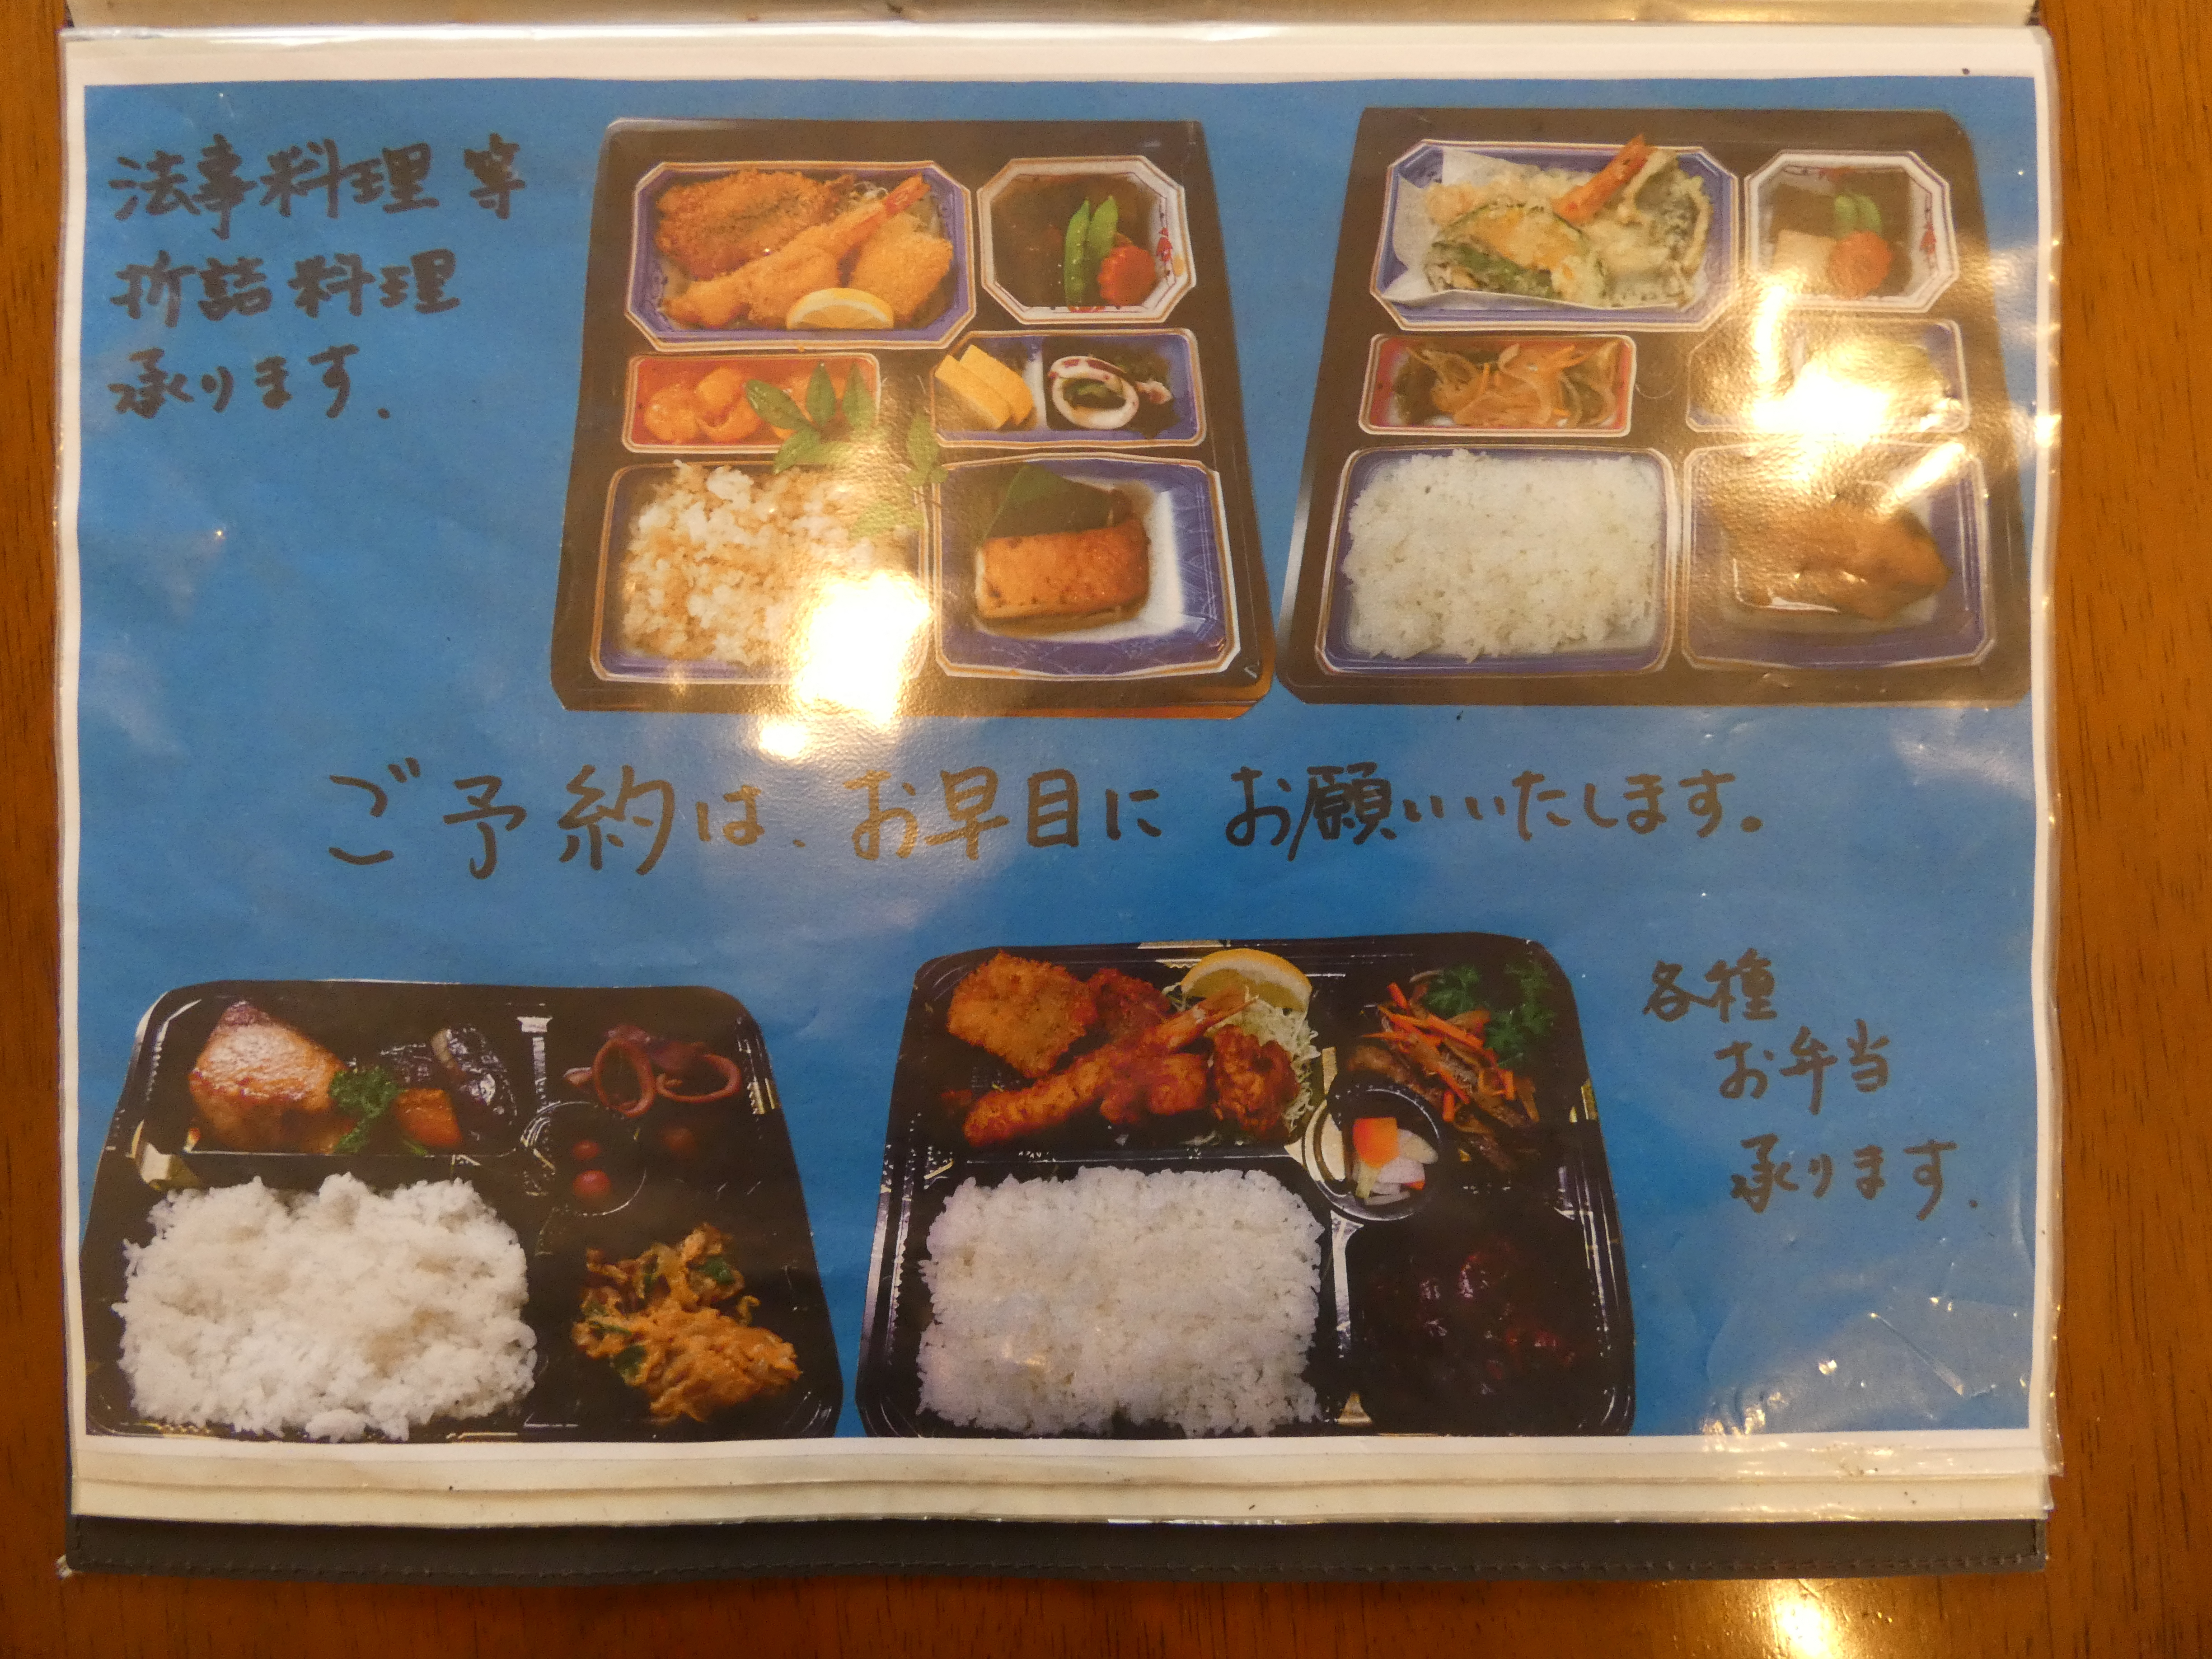 法事料理等
折詰料理
承ります.
ご予約は、お早目に お願いいたします。
各種
お弁当
承ります.